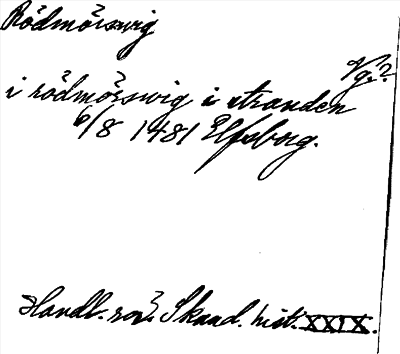 Rödmörswig
Vg.?
i rödmörswig i stranden
6/8 1481 Elfsborg.
Handl. rör. Skand. hist. XXIX.